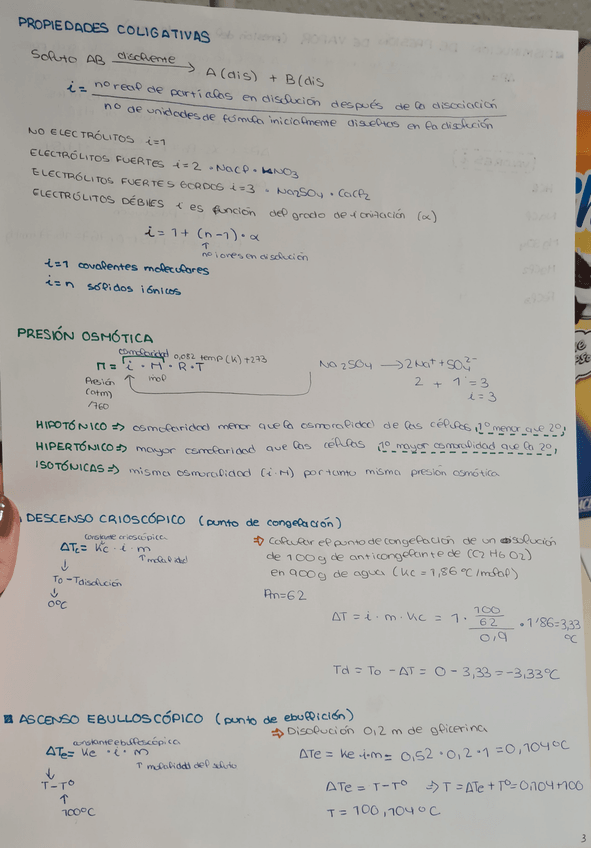 PROPIEDADES COLIGATIVAS
Soluto AB disolvente → A(dis) + B(dis
i = nº real de partículas en disolución después de la disociación
nº de unidades de fórmula inicialmente disueltas en la disolución
NO ELECTRÓLITOS i=1
ELECTRÓLITOS FUERTES i=2 · NaCl · KNO3
ELECTRÓLITOS FUERTES i=3 · Na2SO4 · CaCl2
ELECTRÓLITOS DÉBILES i es función del grado de ionización (α)
i = 1 + (n-1) · α
↑
nº iones en disolución
i=1 covalentes moleculares
i=n sólidos iónicos
PRESIÓN OSMÓTICA
osmolaridad 0,082 temp (K) +273
π = i · M · R · T
Presión
(atm)
/760
mol
Na2SO4 → 2Na+ + SO4 2-
2 + 1 = 3
i = 3
HIPOTÓNICO ⇒ osmolaridad menor que la osmolalidad de las células, 1º menor que 2º,
HIPERTÓNICO ⇒ mayor osmolaridad que las células, 1º mayor osmolalidad que la 2º,
ISOTÓNICAS ⇒ misma osmolalidad (i·M) por tanto misma presión osmótica
DESCENSO CRIOSCÓPICO (punto de congelación)
constante crioscópica
ΔTc = Kc · i · m
↓ ↑ molalidad
To - Tdisolución
↓
0ºC
⇒ Calcular el punto de congelación de un disolución
de 100g de anticongelante de (C2H6O2)
en 900g de agua (Kc = 1,86 ºC/molal)
Pm=62
ΔT = i · m · Kc = 1 · 100/62 / 0,9 · 1'86 = 3,33 ºC
Td = To - ΔT = 0 - 3,33 = -3,33ºC
ASCENSO EBULLOSCÓPICO (punto de ebullición)
constante ebulloscópica
ΔTe = Ke · i · m
↓ ↑ molalidad del soluto
T-Tº
↑
100ºC
⇒ Disolución 0,2 m de glicerina
ΔTe = Ke · i · m = 0,52 · 0,2 · 1 = 0,104ºC
ΔTe = T-Tº ⇒ T = ΔTe + Tº = 0,104+100
T = 100,104ºC
3